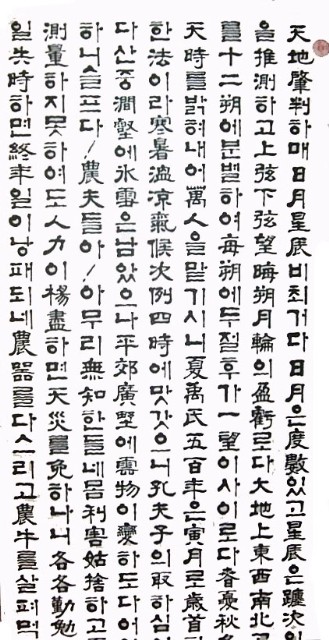 天地肇判하매日月星辰비최거다日月은度數있고星辰은躔次
을推測하고上弦下弦望晦朔月輪의盈虧로다大地上東西南北
를十二朔에분별하여每朔에두절후가一望이사이로다春夏秋
天時를밝혀내어萬人을맡기시니夏禹氏五百年은寅月로歲首
한法이라寒暑溫凉氣候次例四時에맞갖으니孔夫子의取하심
다산중澗壑에氷雪은남았으나平郊廣野에雲物이變하도다어
하니슬프다/農夫들아/아무리無知한들네몸利害姑捨하고
測量하지못하여도人力이極盡하면天災를免하나니各各勤勉
일失時하면終年일이낭패되네農器를다스리고農牛를살펴먹